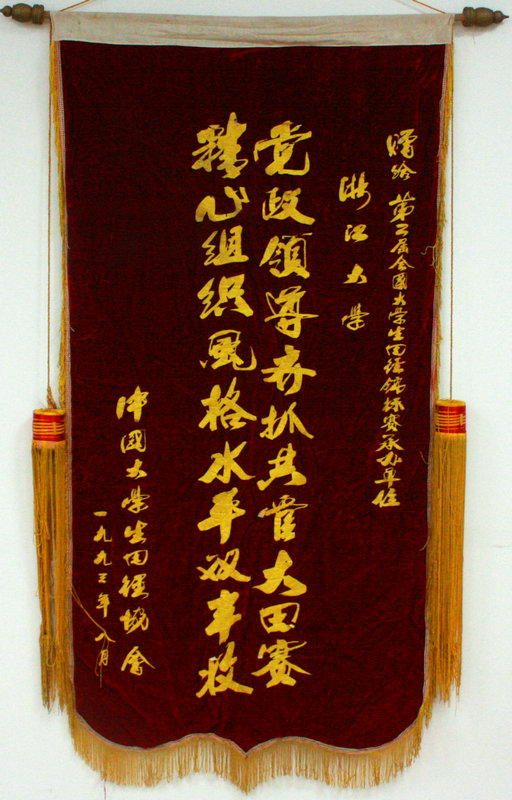 赠给 第二届全国大学生田径锦标赛承办单位
浙江大学
党政领导齐抓共管大田赛
精心组织风格水平双丰收
中国大学生田径协会
一九九三年八月